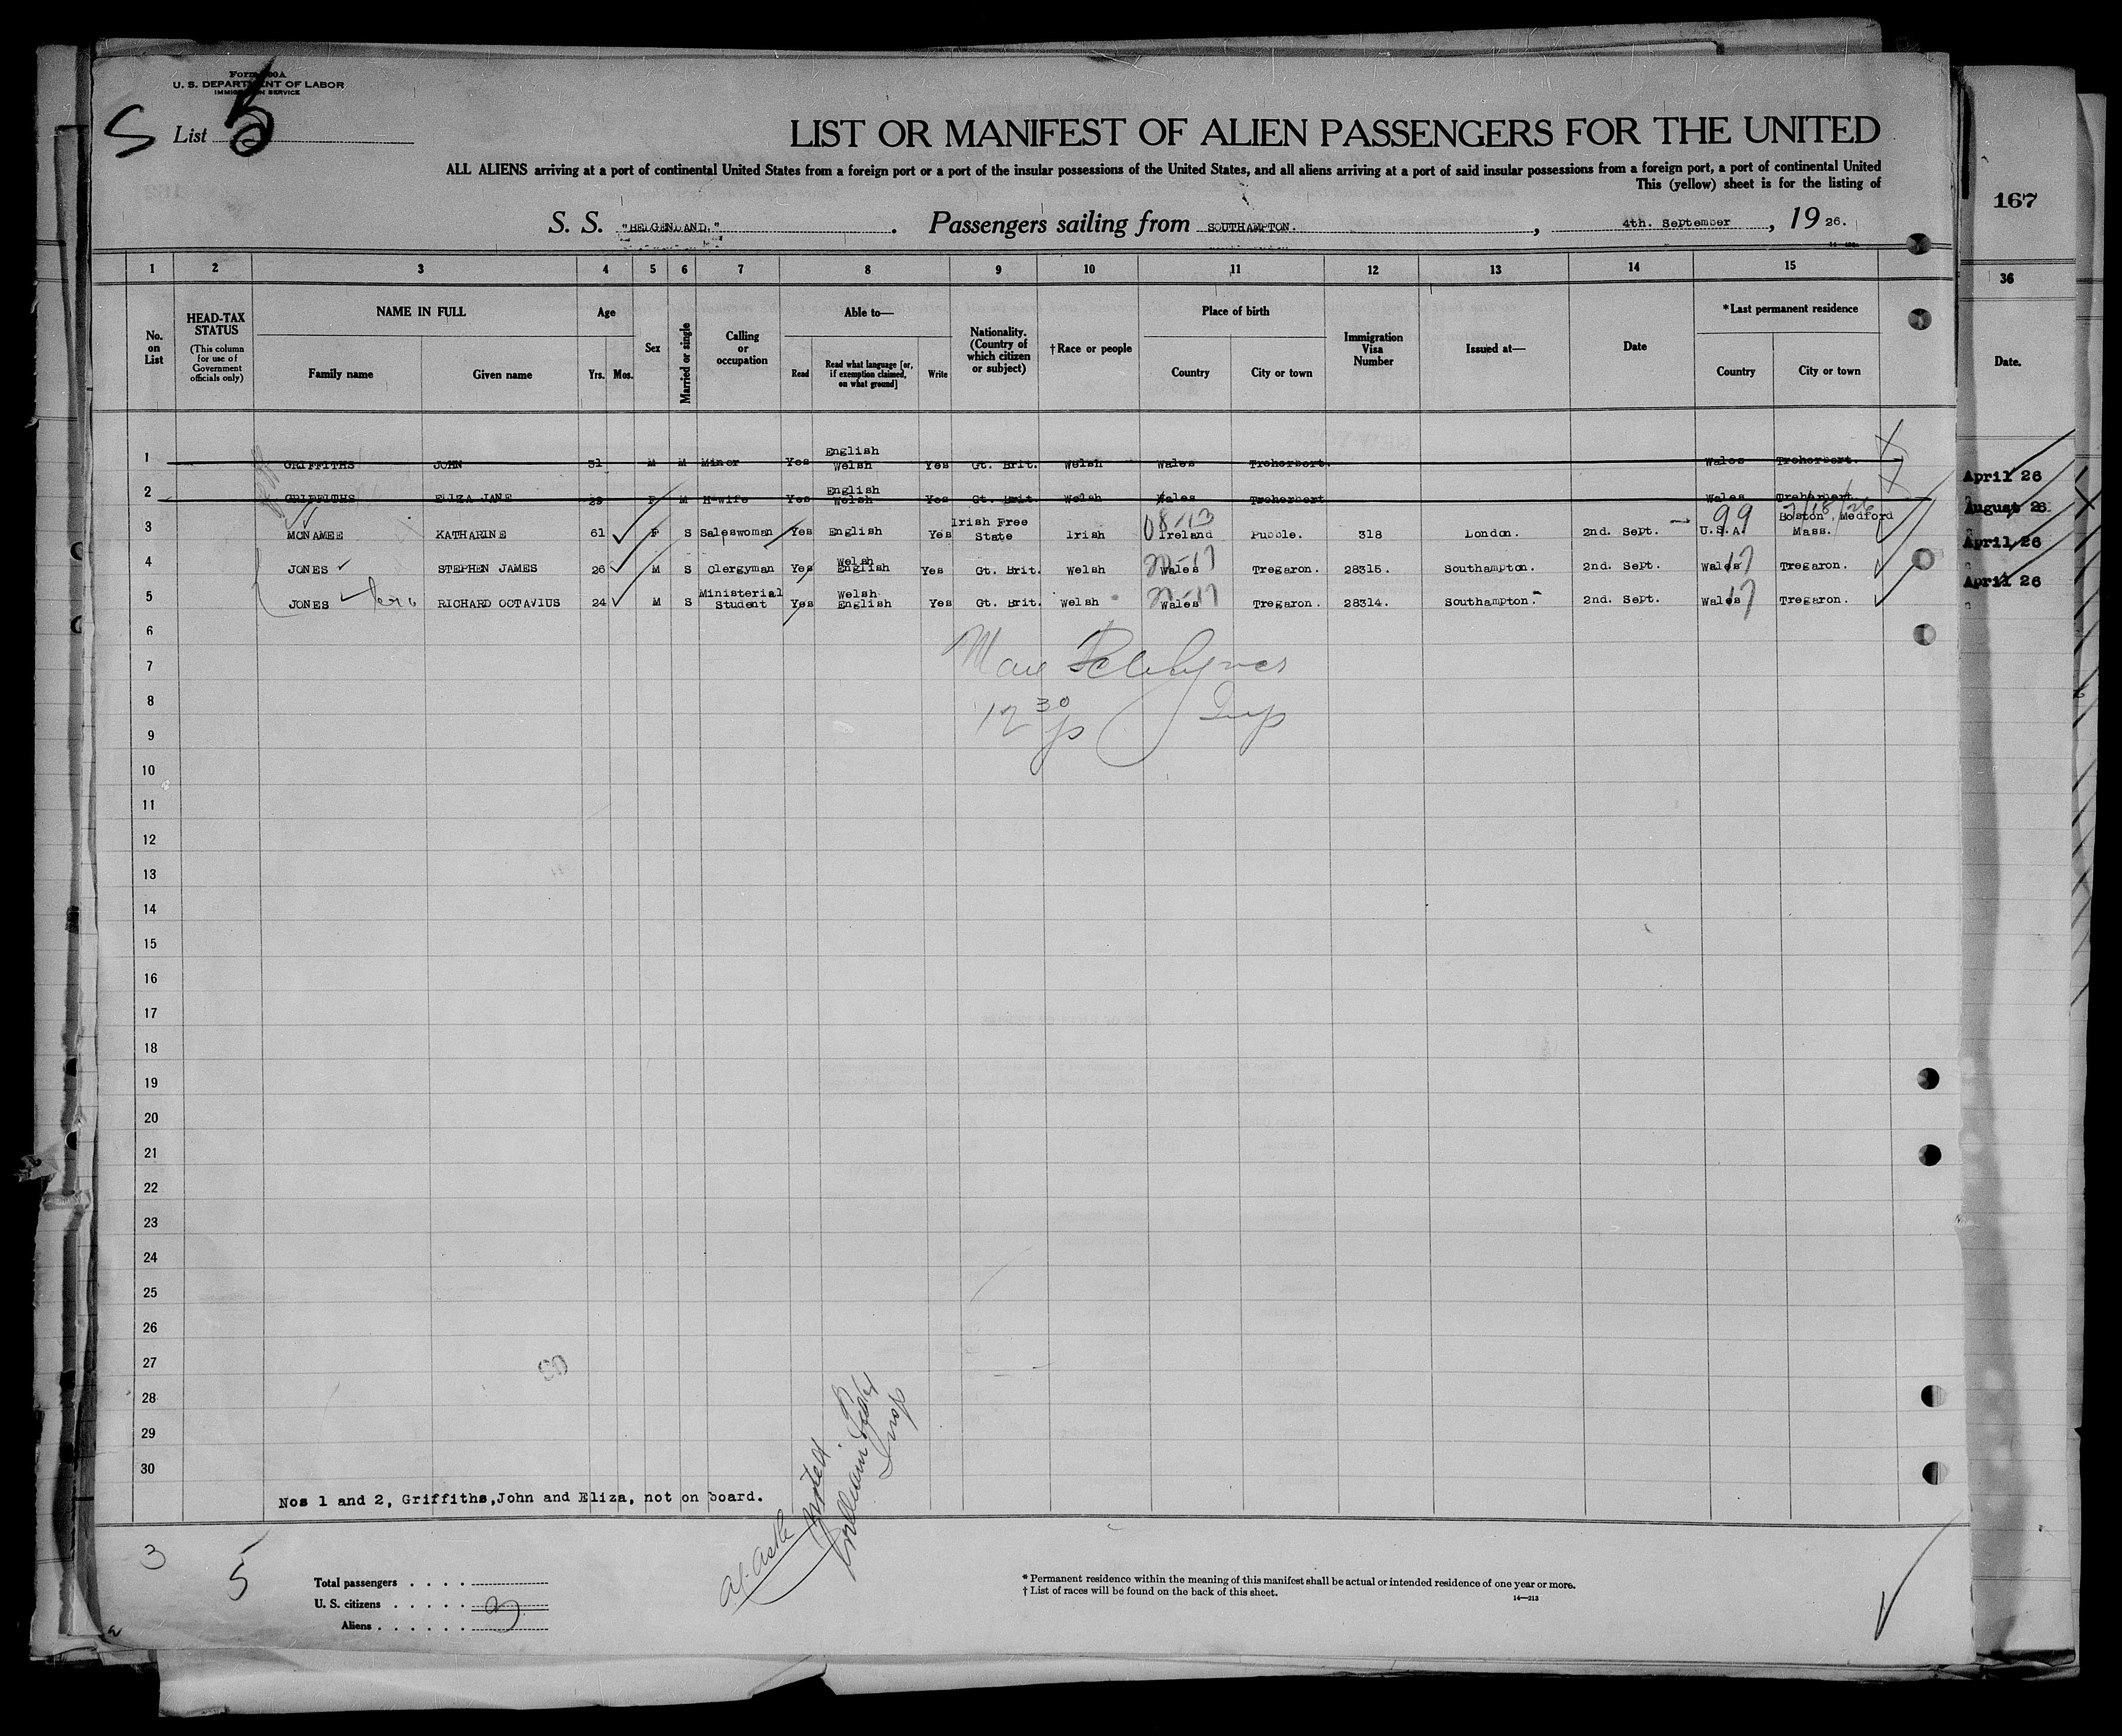 Form 500A
U. S. DEPARTMENT OF LABOR
IMMIGRATION SERVICE
S List 5
LIST OR MANIFEST OF ALIEN PASSENGERS FOR THE UNITED
ALL ALIENS arriving at a port of continental United States from a foreign port or a port of the insular possessions of the United States, and all aliens arriving at a port of said insular possessions from a foreign port, a port of continental United
This (yellow) sheet is for the listing of
167
S. S. "BELGENLAND." . Passengers sailing from SOUTHAMPTON. , 4th. September , 19 26.
1 2 3 4 5 6 7 8 9 10 11 12 13 14 15 36
No. on List HEAD-TAX STATUS (This column for use of Government officials only) NAME IN FULL Family name Given name Age Yrs. Mos. Sex Married or single Calling or occupation Able to— Read Read what language [or, if exemption claimed, on what ground] Write Nationality. (Country of which citizen or subject) †Race or people Place of birth Country City or town Immigration Visa Number Issued at— Date *Last permanent residence Country City or town Date.
1 GRIFFITHS JOHN 31 M M Miner Yes English Welsh Yes Gt. Brit. Welsh Wales Treherbert. Wales Treherbert. X
April 26
2 GRIFFITHS ELIZA JANE 29 F M H-wife Yes English Welsh Yes Gt. Brit. Welsh Wales Treherbert Wales Treherbert X
August 26
3 MCNAMEE KATHARINE 61 F S Saleswoman Yes English Yes Irish Free State Irish 08-13 Ireland Pubble. 318 London. 2nd. Sept. 99 U.S.A. Boston, Medford Mass.
April 26
4 JONES STEPHEN JAMES 26 M S Clergyman Yes Welsh English Yes Gt. Brit. Welsh Wales Tregaron. 28315. Southampton. 2nd. Sept. Wales 17 Tregaron.
April 26
5 JONES RICHARD OCTAVIUS 24 M S Ministerial Student Yes Welsh English Yes Gt. Brit. Welsh Wales Tregaron. 28314. Southampton. 2nd. Sept. Wales 17 Tregaron.
6
7
8
12 30 p Insp
9
10
11
12
13
14
15
16
17
18
19
20
21
22
23
24
25
26
27
28
29
30
Nos 1 and 2, Griffiths,John and Eliza, not on board.
3 5
Total passengers . . . .
U. S. citizens . . . . .
Aliens . . . . . . 3
* Permanent residence within the meaning of this manifest shall be actual or intended residence of one year or more.
† List of races will be found on the back of this sheet.
14—213